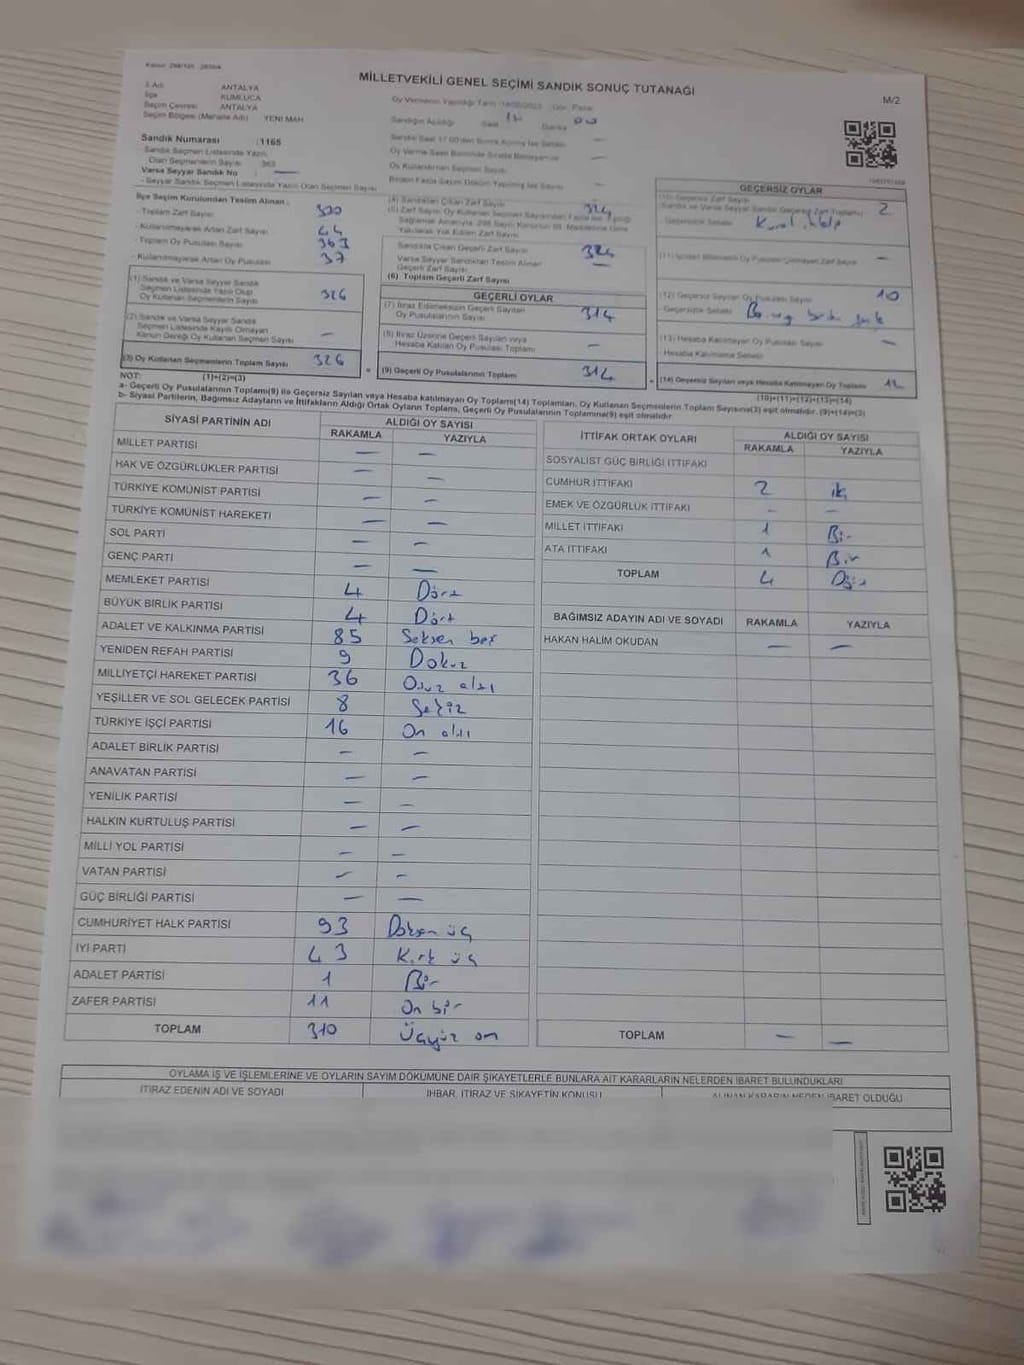 MİLLETVEKİLİ GENEL SEÇİMİ SANDIK SONUÇ TUTANAĞI
M/2
İli Adı ANTALYA
İlçe KUMLUCA
Seçim Çevresi ANTALYA
Seçim Bölgesi (Mahalle Adı) YENİ MAH
Sandık Numarası :1165
Sandık Seçmen Listesinde Yazılı
Olan Seçmenlerin Sayısı 363
Varsa Seyyar Sandık No : —
İlçe Seçim Kurulundan Teslim Alınan :
- Toplam Zarf Sayısı 370
- Kullanılmayarak Artan Zarf Sayısı 44
- Toplam Oy Pusulası Sayısı 363
- Kullanılmayarak Artan Oy Pusulası 37
(1) Sandık ve Varsa Seyyar Sandık
Seçmen Listesinde Yazılı Olup
Oy Kullanan Seçmenlerin Sayısı 326
(2) Sandık ve Varsa Seyyar Sandık
Seçmen Listesinde Kaydı Olmayan
Kanun Gereği Oy Kullanan Seçmen Sayısı —
(3) Oy Kullanan Seçmenlerin Toplam Sayısı 326
(4) Sandıktan Çıkan Zarf Sayısı 324
Sandıkta Çıkan Geçerli Zarf Sayısı 324
Varsa Seyyar Sandıktan Teslim Alınan
Geçerli Zarf Sayısı —
(6) Toplam Geçerli Zarf Sayısı
GEÇERLİ OYLAR
(7) İtiraz Edilmeksizin Geçerli Sayılan
Oy Pusulalarının Sayısı 314
(8) İtiraz Üzerine Geçerli Sayılan veya
Hesaba Katılan Oy Pusulası Toplamı —
(9) Geçerli Oy Pusulalarının Toplamı 314
GEÇERSİZ OYLAR
2
10
(13) Hesaba Katılmayan Oy Pusulası Sayısı —
Hesaba Katılmama Sebebi
(14) Geçersiz Sayılan veya Hesaba Katılmayan Oy Toplamı 12
NOT: (1)+(2)=(3) (10)+(11)+(12)+(13)=(14)
a- Geçerli Oy Pusulalarının Toplamı(9) ile Geçersiz Sayılan veya Hesaba katılmayan Oy Toplamı(14) Toplamları, Oy Kullanan Seçmenlerin Toplam Sayısına(3) eşit olmalıdır. (9)+(14)=(3)
b- Siyasi Partilerin, Bağımsız Adayların ve İttifakların Aldığı Ortak Oyların Toplamı, Geçerli Oy Pusulalarının Toplamına(9) eşit olmalıdır.
SİYASİ PARTİNİN ADI ALDIĞI OY SAYISI
RAKAMLA YAZIYLA
MİLLET PARTİSİ — —
HAK VE ÖZGÜRLÜKLER PARTİSİ — —
TÜRKİYE KOMÜNİST PARTİSİ — —
TÜRKİYE KOMÜNİST HAREKETİ — —
SOL PARTİ — —
GENÇ PARTİ — —
MEMLEKET PARTİSİ 4 Dört
BÜYÜK BİRLİK PARTİSİ 4 Dört
ADALET VE KALKINMA PARTİSİ 85 Seksen beş
YENİDEN REFAH PARTİSİ 9 Dokuz
MİLLİYETÇİ HAREKET PARTİSİ 36 Otuz altı
YEŞİLLER VE SOL GELECEK PARTİSİ 8 Sekiz
TÜRKİYE İŞÇİ PARTİSİ 16 On altı
ADALET BİRLİK PARTİSİ — —
ANAVATAN PARTİSİ — —
YENİLİK PARTİSİ — —
HALKIN KURTULUŞ PARTİSİ — —
MİLLİ YOL PARTİSİ — —
VATAN PARTİSİ — —
GÜÇ BİRLİĞİ PARTİSİ — —
CUMHURİYET HALK PARTİSİ 93 Doksan üç
İYİ PARTİ 43 Kırk üç
ADALET PARTİSİ 1 Bir
ZAFER PARTİSİ 11 On bir
TOPLAM 310 Üçyüz on
İTTİFAK ORTAK OYLARI ALDIĞI OY SAYISI
RAKAMLA YAZIYLA
SOSYALİST GÜÇ BİRLİĞİ İTTİFAKI
CUMHUR İTTİFAKI 2 iki
EMEK VE ÖZGÜRLÜK İTTİFAKI — —
MİLLET İTTİFAKI 1 Bir
ATA İTTİFAKI 1 Bir
TOPLAM 4 Dört
BAĞIMSIZ ADAYIN ADI VE SOYADI RAKAMLA YAZIYLA
HAKAN HALİM OKUDAN — —
TOPLAM — —
OYLAMA İŞ VE İŞLEMLERİNE VE OYLARIN SAYIM DÖKÜMÜNE DAİR ŞİKAYETLERLE BUNLARA AİT KARARLARIN NELERDEN İBARET BULUNDUKLARI
İTİRAZ EDENİN ADI VE SOYADI İHBAR, İTİRAZ VE ŞİKAYETİN KONUSU ALINAN KARARIN NEDEN İBARET OLDUĞU